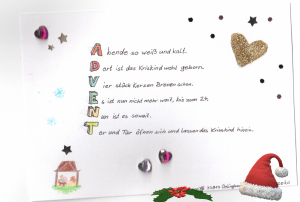 Abende so weiß und kalt.
Dort ist das Kriskind wohl geborn.
Vier stück Kerzen Brennen schon.
Es ist nun nicht mehr weit, bis zum 24.
Nun ist es soweit.
Tor und Tür öffnen wir und lassen das Kriskind hinein.